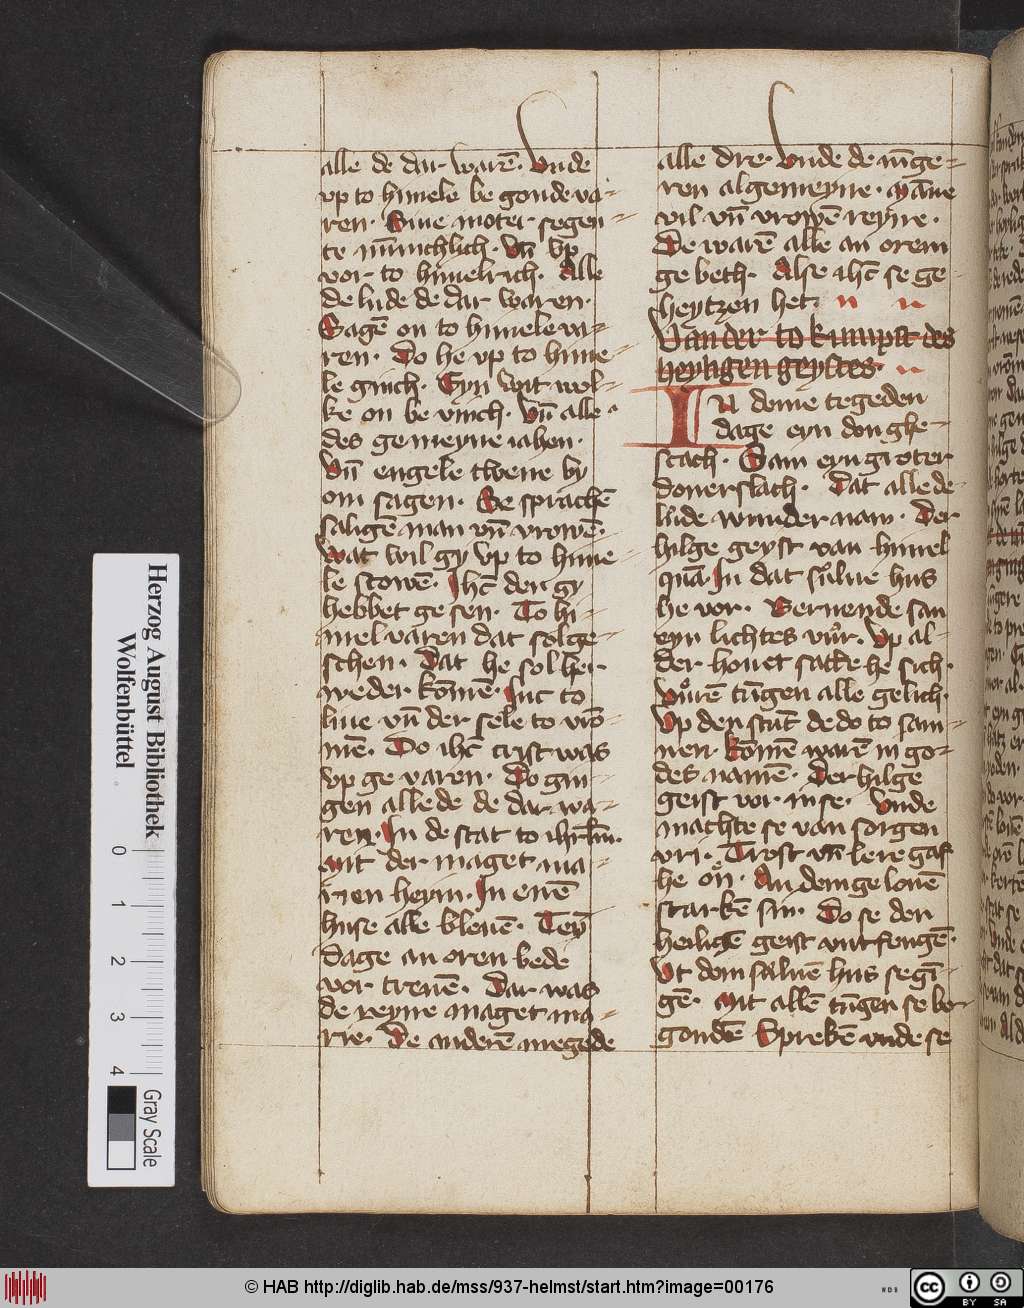 alle de dar warē. Vnde
vp to himele be gonde va-
ren. Sine moter segen-
te mīnichlich. Vn̄ vp
vor to himelrich. Alle
de lude de dar waren.
Sagē on to himele va-
ren. Do he vp to hime-
le ginch. Eyn wit wol-
ke on be vinch. Vn̄ alle
des gemeyne iahen.
Vn̄ engele twene by
om sagen. Se sprachē
saligē man vn̄ vrowē.
Wat wil gy vp to hime-
le scowē. Ihc̄ den gy
hebbet ge sen. To hi-
mel varen dat sol ge-
schen. Dat he sol her
weder komē.
live vn̄ der sele to vro-
mē. Do ihc̄ crist was
vp ge varen. Do gin-
gen alle de de dar wa-
ren. In de stat to
mit der maget ma-
rien heym. In enē
huse alle bleuē. Teyn
dage an oren bede
vor treuē. Dar was
de reyne maget ma-
rie. De anderē megede
alle dre. Vnde de iūge-
ren algemeyne. Māne
vil vn̄ vrowē reyne.
De warē alle an orem
ge beth. Alse ihc̄ se ge-
heytzen het.
Van der to kumpst des
heyligen geystes.
IN deme tegeden
dage eyn don ghe-
scach. Sam eyn groter
donerslach. Dat alle de
lude wunder nam. Der
hilge geyst van himel
quā. In dat sulue hus
he vor. Bernende sam
eyn lichtes vůr. Vp al-
der houet satte he sich.
Vůrē tūgen alle gelich.
Vp den stūt de do to sam-
nen. komē warē in go-
des namē. Der hilge
geist vor in se. Vnde
machte se van sorgen
vri. Trost vn̄ lere gaf
he on. An dem gelouē
starkē sin. Do se den
heiligē geist vntfengē.
Vt dem suluē hus se gī-
gē. Mit allē tūgen se be-
gondē Sprekē vnde se
Herzog August Bibliothek
Wolfenbüttel
0 1 2 3 4
Gray Scale
© HAB http://diglib.hab.de/mss/937-helmst/start.htm?image=00176
WDB
cc
BY SA